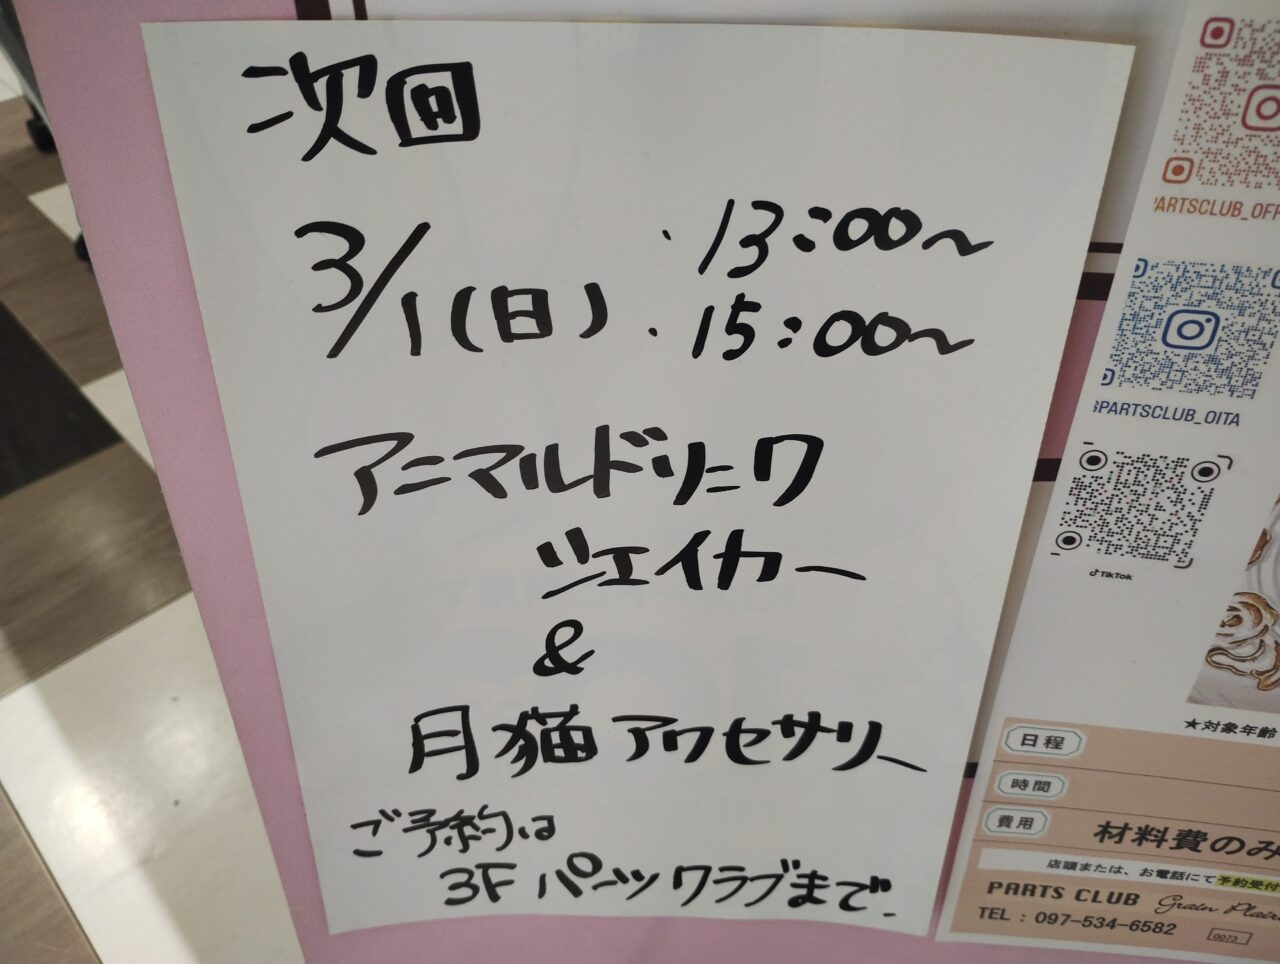 次回
3/1(日) ・13:00〜
・15:00〜
アニマルドリンク
シェイカー
&
月猫アクセサリー
ご予約は
3F パーツクラブまで.
PARTSCLUB_OFF
PARTSCLUB_OITA
TikTok
★対象年齢
日程
時間
費用
材料費のみ
店頭または、お電話にて予約受付
PARTS CLUB Grain Plaire
TEL : 097-534-6582
0073